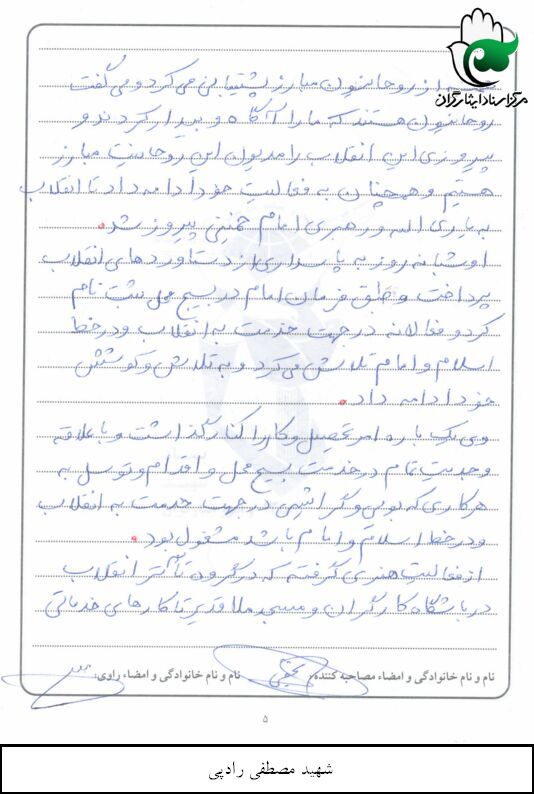 مرکز اسناد ایثارگران
از روحانیون مبارز پشتیبانی می کرد و می گفت
روحانیون هستند که ما را آگاه و بیدار کردند و
پیروزی این انقلاب را مدیون این روحانیت مبارز
هستیم و همچنان به فعالیت خود ادامه داد تا انقلاب
به یاری الله و رهبری امام خمینی پیروز شد.
او شبانه روز به پاسداری از دستاوردهای انقلاب
پرداخت و طبق فرمان امام در بسیج محل ثبت نام
کرد و فعالانه در جهت خدمت به انقلاب و در خط
اسلام و امام تلاش می کرد و به تلاش و کوشش
خود ادامه داد.
وی یک باره امر تحصیل و کار را کنار گذاشت و با علاقه
وجدیت تمام در خدمت بسیج محل و اقدام و توسل به
هر کاری که بویی و گرایشی در جهت خدمت به انقلاب
و در خط اسلام و امام باشد مشغول بود.
از فعالیت هنری گرفته که در گروه تأتر انقلاب
در باشگاه کارگران و مسجد ملا قدیر تا کارهای خدماتی
نام و نام خانوادگی و امضاء مصاحبه کننده: نام و نام خانوادگی و امضاء راوی:
۵
شهید مصطفی رادپی